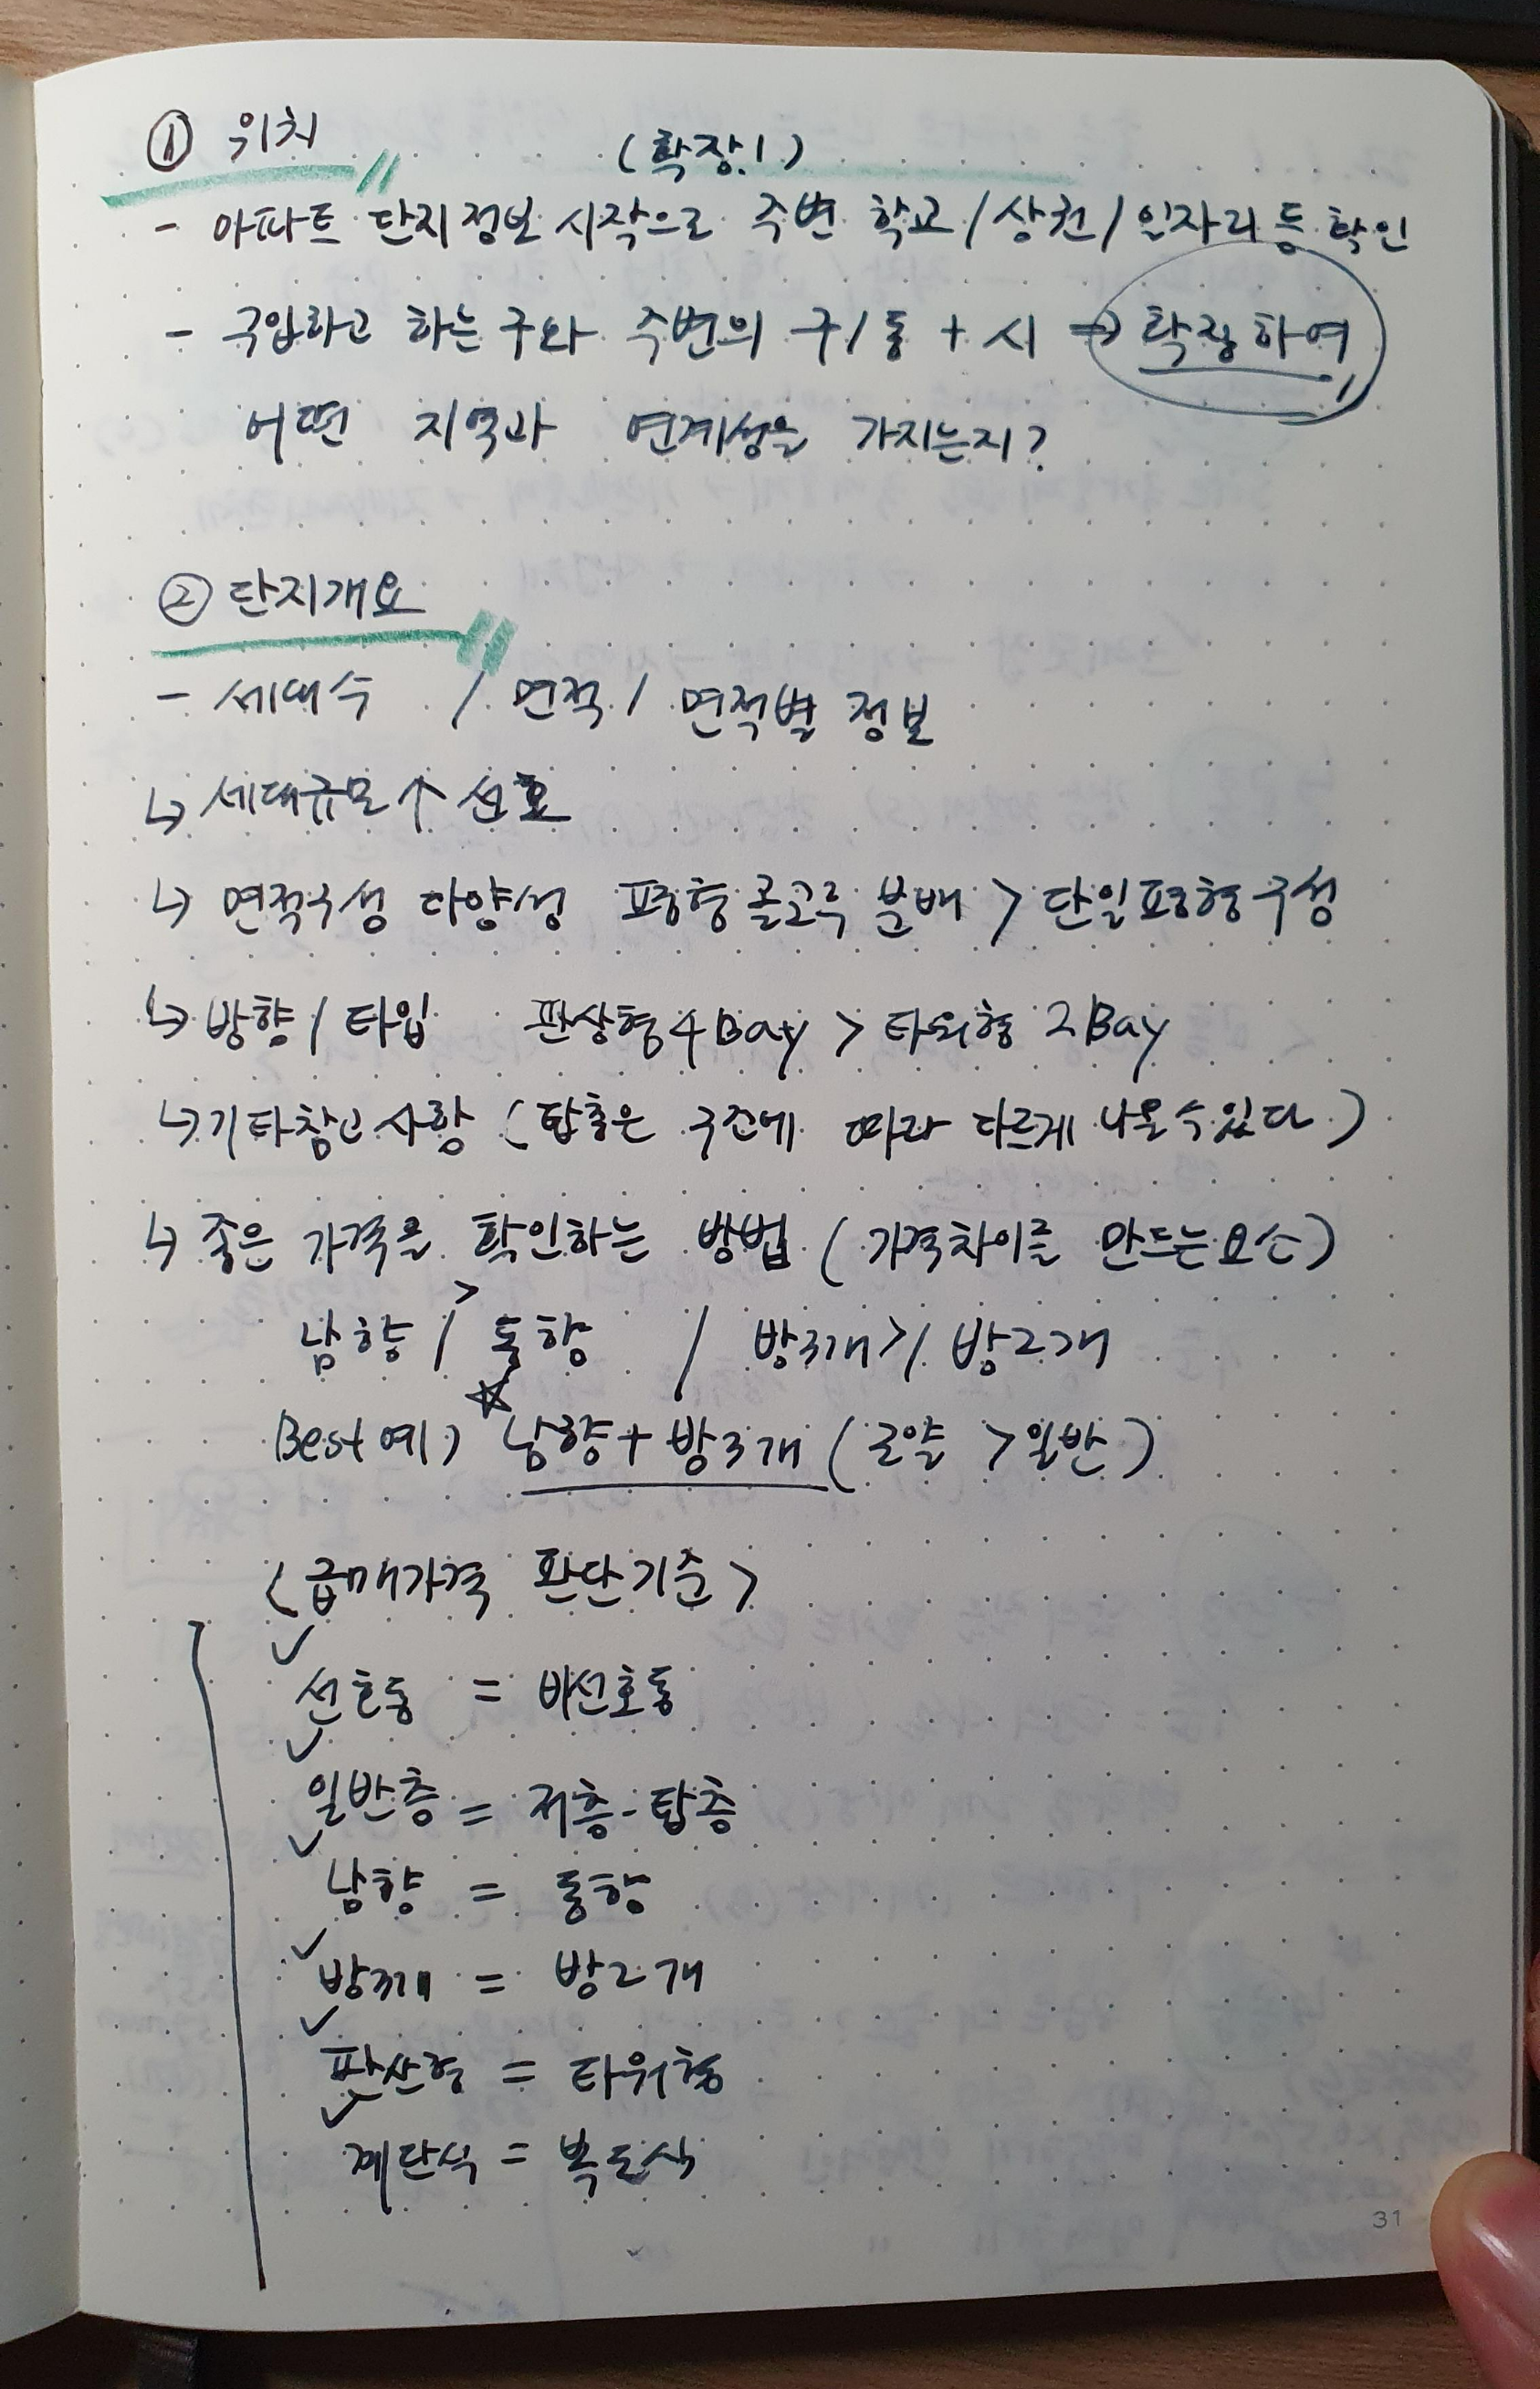 ① 위치
(확장!)
- 아파트 단지정보 시작으로 주변 학교/상권/일자리 등 확인
- 구입하고 하는 구와 주변의 구/동 + 시 → 확장하여
어떤 지역과 연계성을 가지는지?
② 단지개요
- 세대수 / 면적 / 면적별 정보
↳ 세대규모↑ 선호
↳ 면적구성 다양성 평형 골고루 분배 > 단일평형구성
↳ 방향/타입 판상형4Bay > 타워형 2Bay
↳ 기타참고사항 (탑층은 구조에 따라 다르게 나올수있다)
↳ 좋은 가격을 확인하는 방법 (가격차이를 만드는요소)
남향 / > 동향 / 방3개 > / 방2개
Best예) ☆ 남향 + 방3개 (로얄 > 일반)
<급매가격 판단기준>
✓ 선호동 = 비선호동
✓ 일반층 = 저층-탑층
✓ 남향 = 동향
✓ 방3개 = 방2개
✓ 판상형 = 타워형
✓ 계단식 = 복도식
31